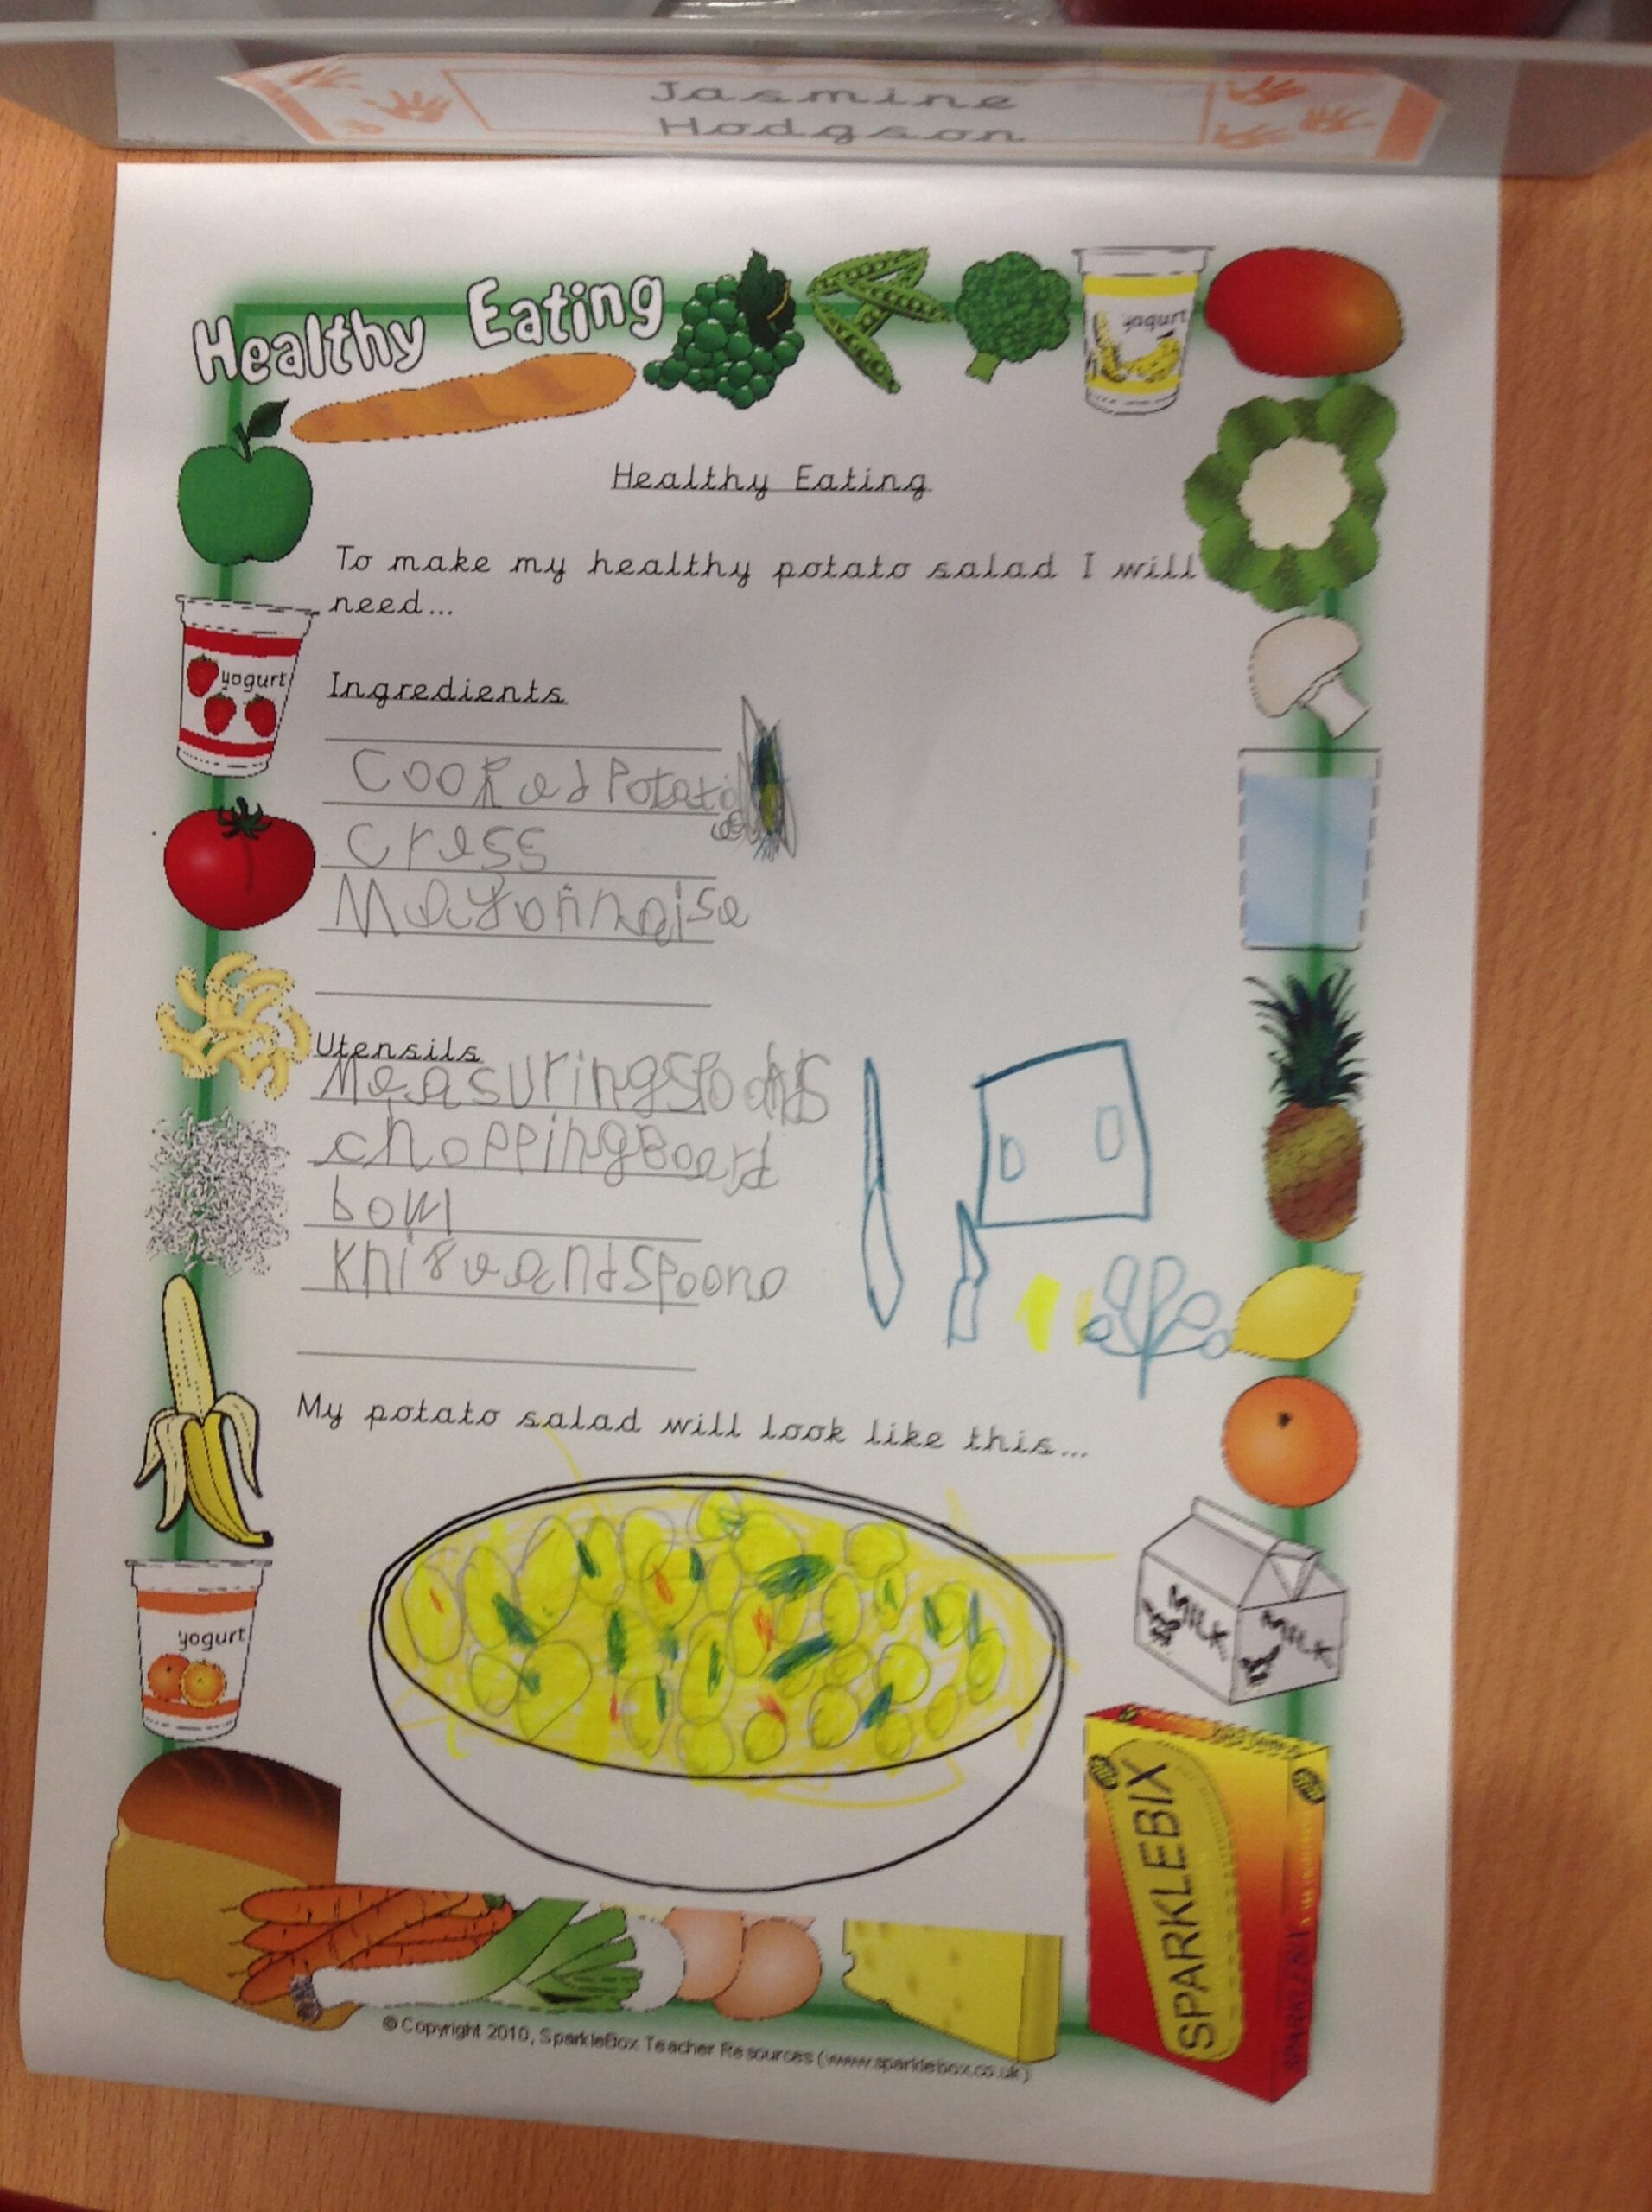 Jasmine
Hodgson
Healthy Eating
yogurt
Healthy Eating
To make my healthy potato salad I will
need...
yogurt
Ingredients
Cooked Potato
es
cress
Mayonnaise
Utensils
Measuringspoons
choppingBoard
bowl
knifeandspoono
My potato salad will look like this...
MILK MILK
yogurt
SPARKLEBIX
© Copyright 2010, SparkleBox Teacher Resources (www.sparklebox.co.uk)